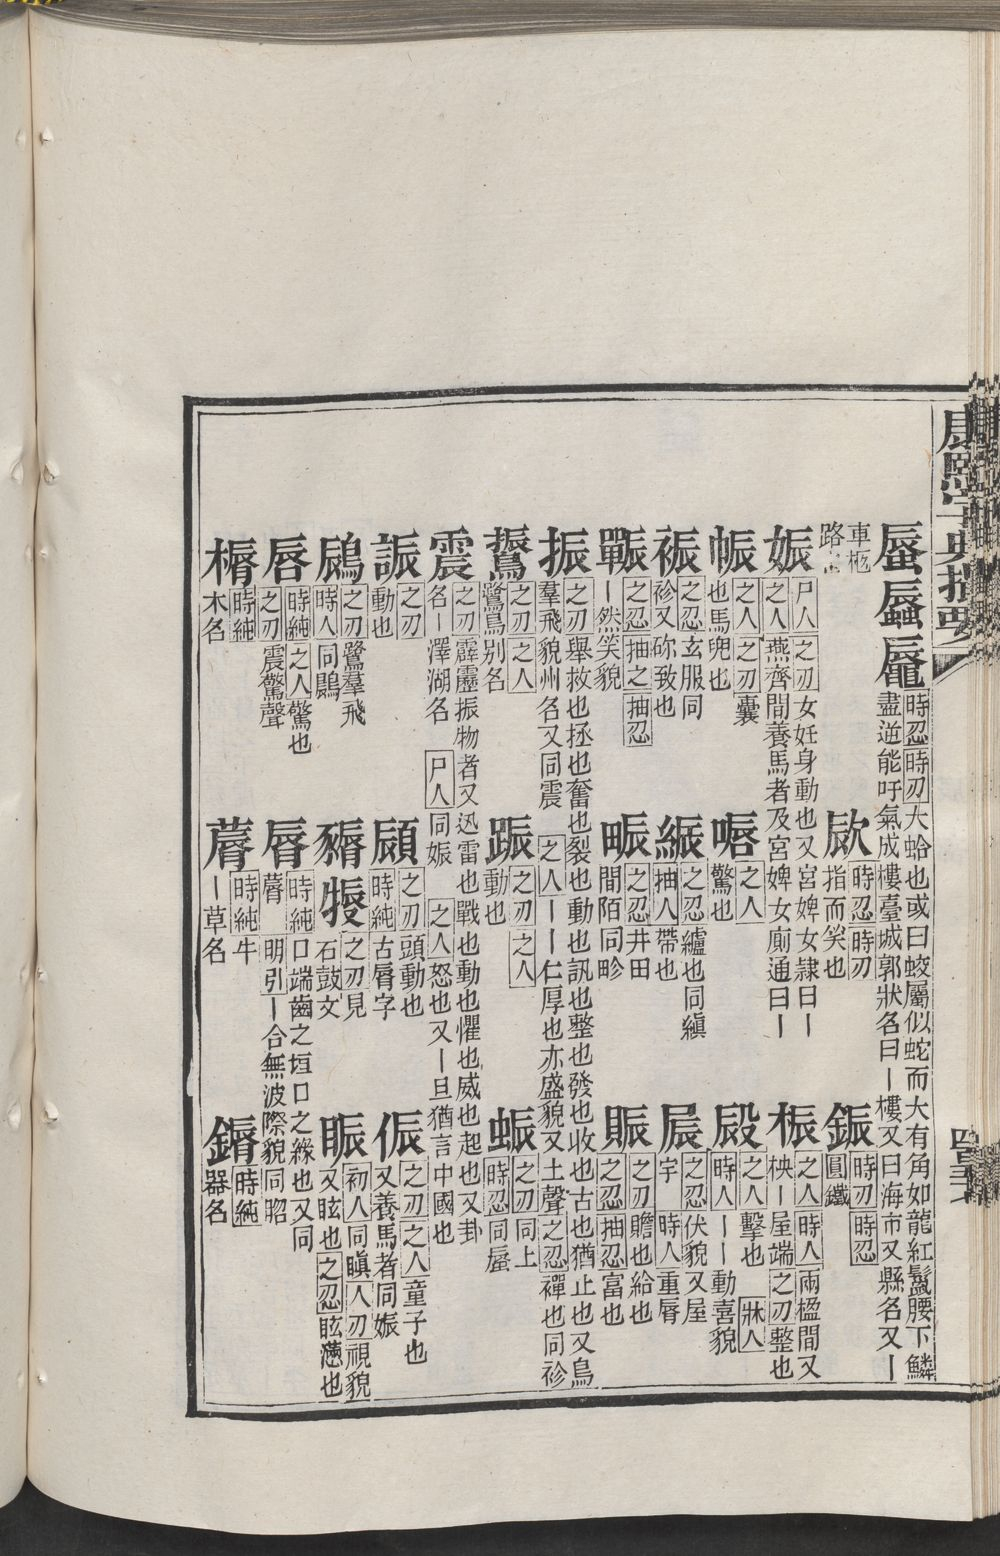 康熙字典撮要
蜃蜄𪓧 時忍時刃大蛤也或曰蛟屬似蛇而大有角如龍紅鬣腰下鱗
盡逆能吁氣成樓臺城郭狀名曰丨樓又曰海市又縣名又丨
車柩
路
㰮 時忍時刃
指而笑也
鋠 時刃時忍
圓鐵
娠 尸人之刃女妊身動也又宮婢女隸曰丨
之人燕齊間養馬者及宮婢女廁通曰丨
桭 之人時人兩楹間又
柍丨屋端之刃整也
帪 之人之刃囊
也馬兜也
㖘 之人
驚也
𣪁 之人擊也 牀人
時人丨丨動喜貌
裖 之忍玄服同
袗又祢致也
縀 之忍纑也同縝
抽人帶也
㞟 之忍伏貌又屋
宇 時人重脣
囅 之忍抽之抽忍
丨然笑貌
畛 之忍井田
間陌同畛
賑 之刃贍也給也
之忍抽忍富也
振 之刃舉救也拯也奮也裂也動也訊也整也發也收也古也猶止也又鳥
羣飛貌州名又同震 之人丨丨仁厚也亦盛貌又土聲之忍襌也同袗
鷐 之刃之人
鷺鳥別名
踬 之刃之人
動也
蜄 之刃同上
時忍同蜃
震 之刃霹靂振物者又迅雷也戰也動也懼也威也起也又卦
名丨澤湖名 尸人同娠 之人怒也又丨旦猶言中國也
誫 之刃
動也
䫃 之刃頭動也
時純古脣字
侲 之刃之人童子也
又養馬者同娠
鷐 之刃鷺羣飛
時人同鷐
之刃見
石鼓文
䀼 初人同瞋人刃視貌
又眩也之忍眩懣也
唇 時純之人驚也
之刃震驚聲
脣 時純口端齒之垣口之緣也又同
䔚 明引丨合無波際貌同㫚
㮴 時純
木名
蓐 時純牛
丨草名
錞 時純
器名